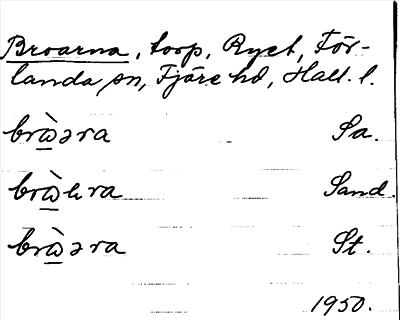 Broarna, torp, Ryet, För-
landa sn, Fjäre hd, Hall. l.
brὼəra Sa.
brὼɐra Sand.
brὼəra St.
1950.